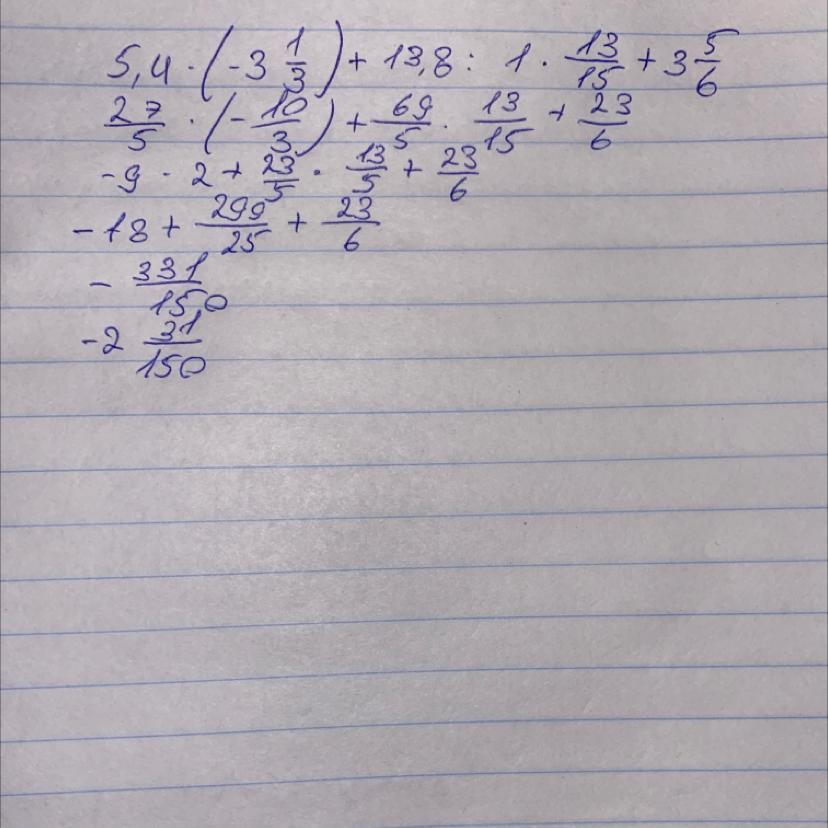 5,4 · (-3 1/3) + 13,8 : 1 · 13/15 + 3 5/6
27/5 · (- 10/3) + 69/5 · 13/15 + 23/6
-9 · 2 + 23/5 · 13/5 + 23/6
-18 + 299/25 + 23/6
- 331/150
-2 31/150